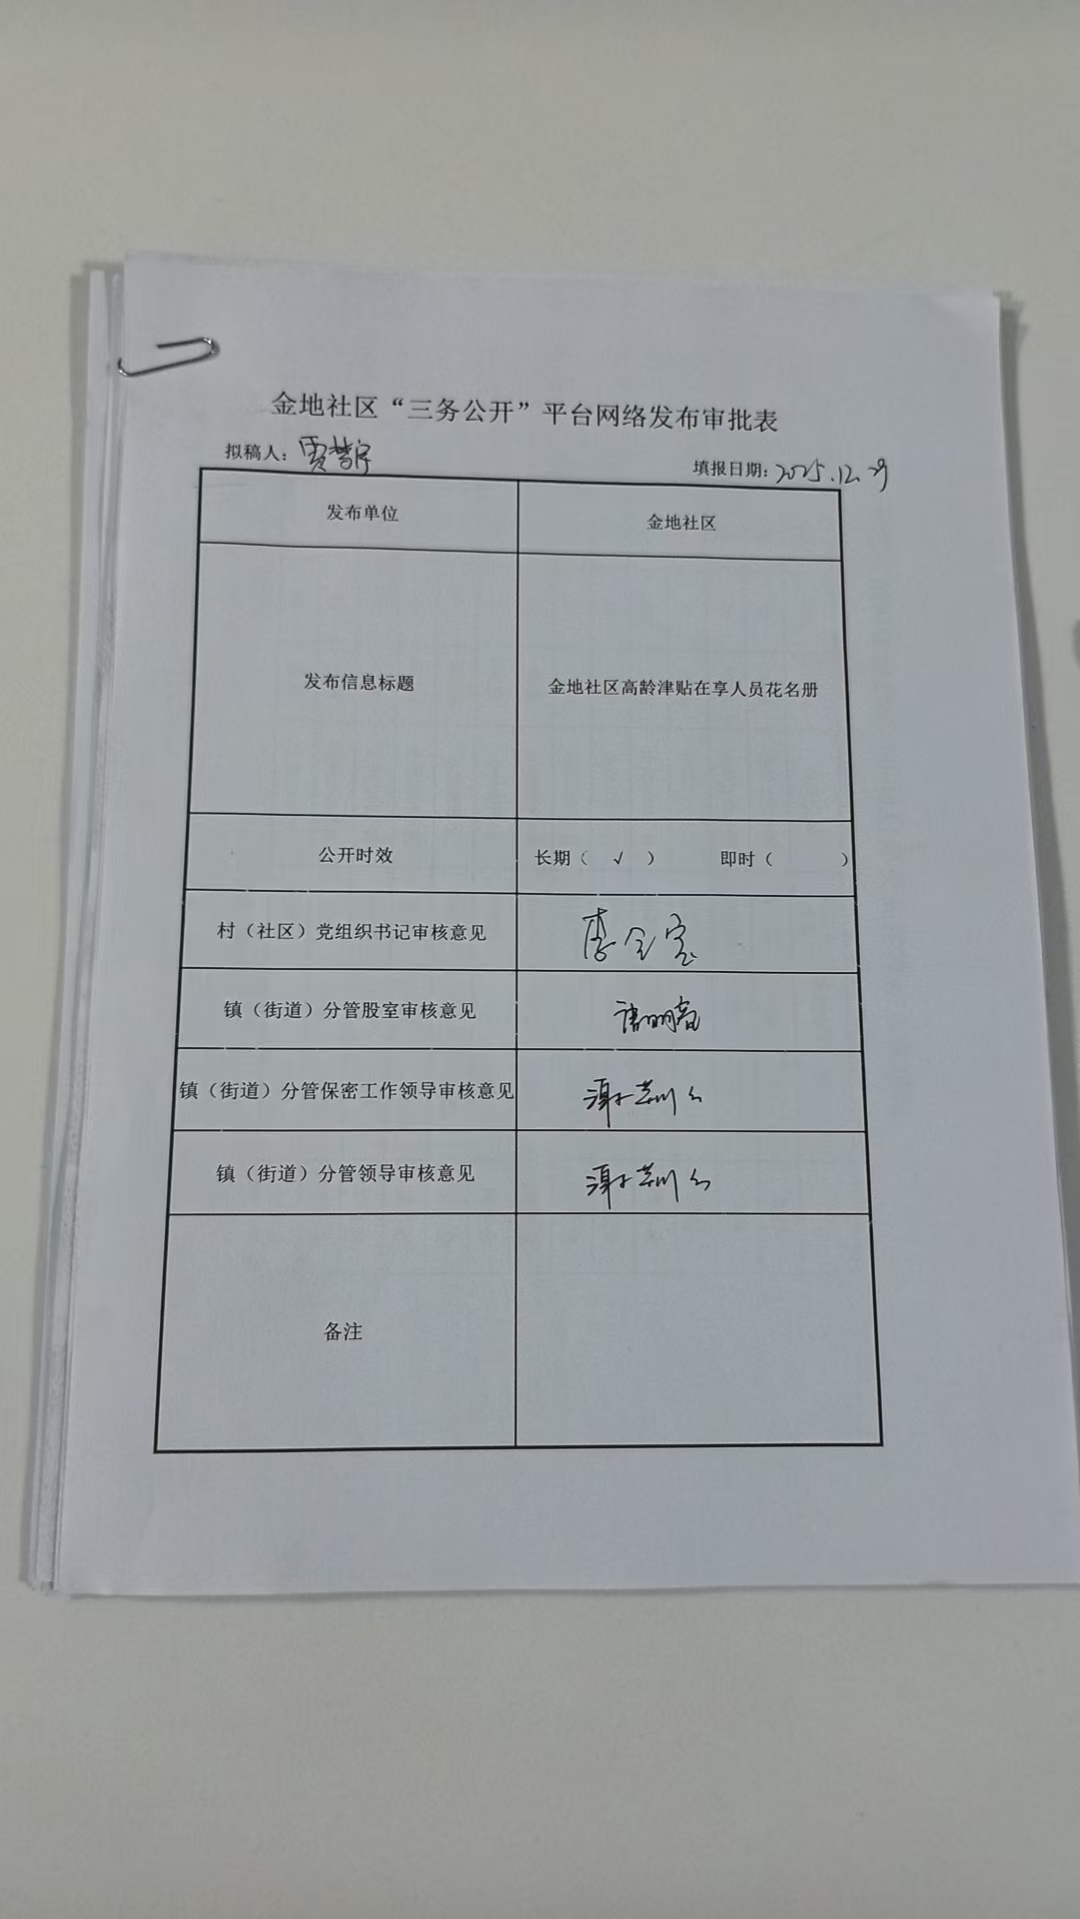 金地社区“三务公开”平台网络发布审批表
拟稿人：贾慧宇 填报日期：2025.12.29
发布单位 金地社区
发布信息标题 金地社区高龄津贴在享人员花名册
公开时效 长期（ √ ） 即时（ ）
村（社区）党组织书记审核意见 李金宝
镇（街道）分管股室审核意见
镇（街道）分管保密工作领导审核意见
镇（街道）分管领导审核意见
备注